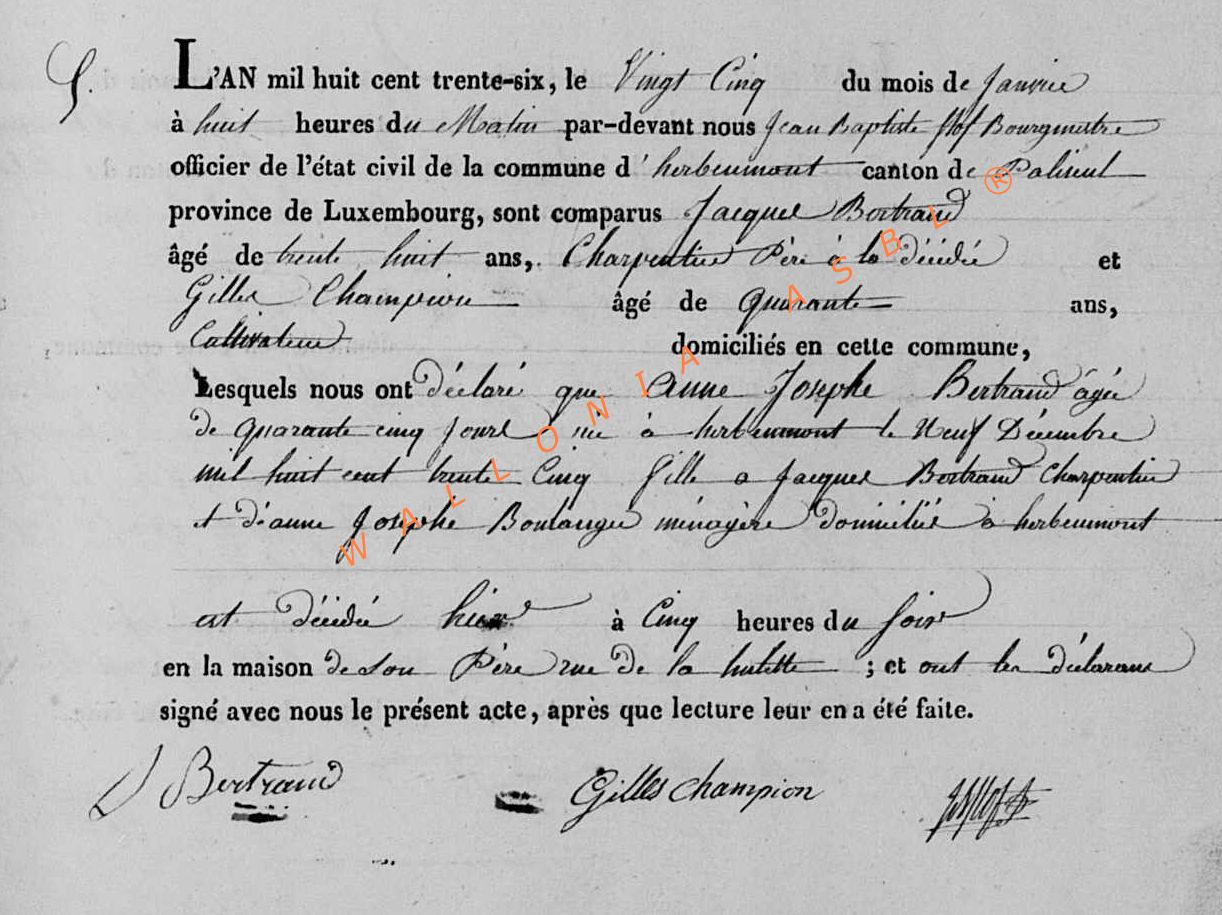 5.
L'AN mil huit cent trente-six, le Vingt Cinq du mois de Janvier
à huit heures du Matin par-devant nous Jean Baptiste Bourgmestre
officier de l'état civil de la commune d'herbeumont canton de Paliseul
province de Luxembourg, sont comparus Jacques Bertrand
âgé de trente huit ans, Charpentier Père à la décédée et
Gilles Champion âgé de Quarante ans,
Cultivateur domiciliés en cette commune,
Lesquels nous ont déclaré que Anne Josephe Bertrand âgée
de quarante cinq jours née à herbeumont le Neuf Décembre
mil huit cent trente Cinq fille a Jacques Bertrand Charpentier
et d'anne Josephe Boulanger ménagère domiciliés à herbeumont
est décédée hier à Cinq heures du soir
en la maison de son Père rue de la hulette ; et ont les déclarans
signé avec nous le présent acte, après que lecture leur en a été faite.
J Bertrand Gilles Champion
WALLONIA ASBL ®